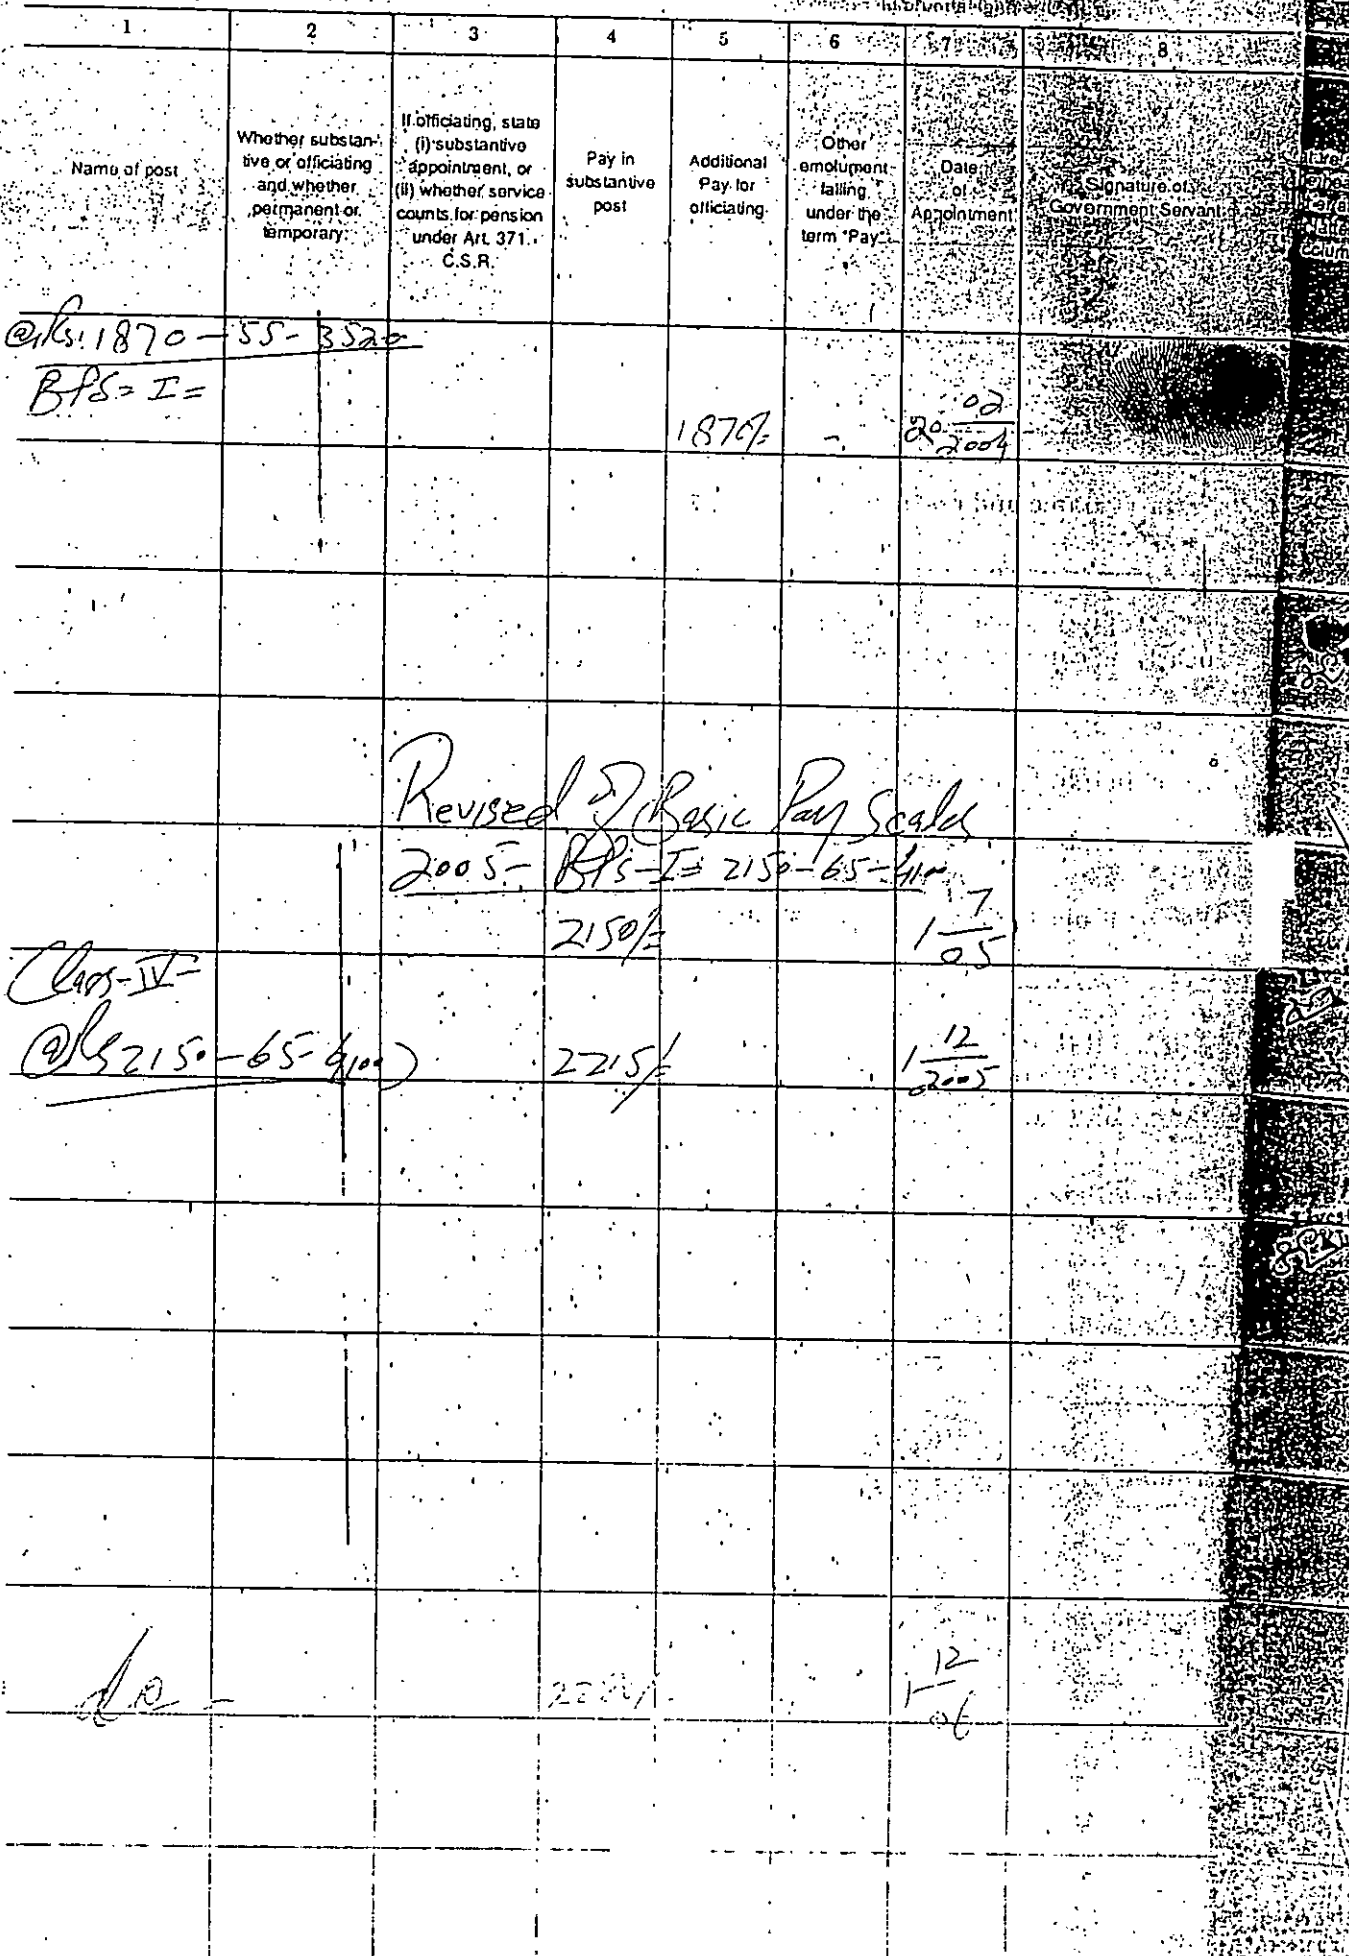 1 2 3 4 5 6 7 8
Name of post
Whether substan-
tive or officiating
and whether
permanent or
temporary
If officiating, state
(i) substantive
appointment, or
(ii) whether service
counts for pension
under Art. 371
C.S.R.
Pay in
substantive
post
Additional
Pay for
officiating
Other
emolument
falling
under the
term "Pay"
Date
of
Appointment
Signature of
Government Servant
@Rs. 1870-55-3520
BPS-I=
1870/= - 20 02 2004
Revised of Basic Pay Scales
2005- BPS-I= 2150-65-4100
2150/= 1 7 05
Class-IV=
@Rs 2150-65-4100)
2215/= 1 12 2005
do = 1 12 06